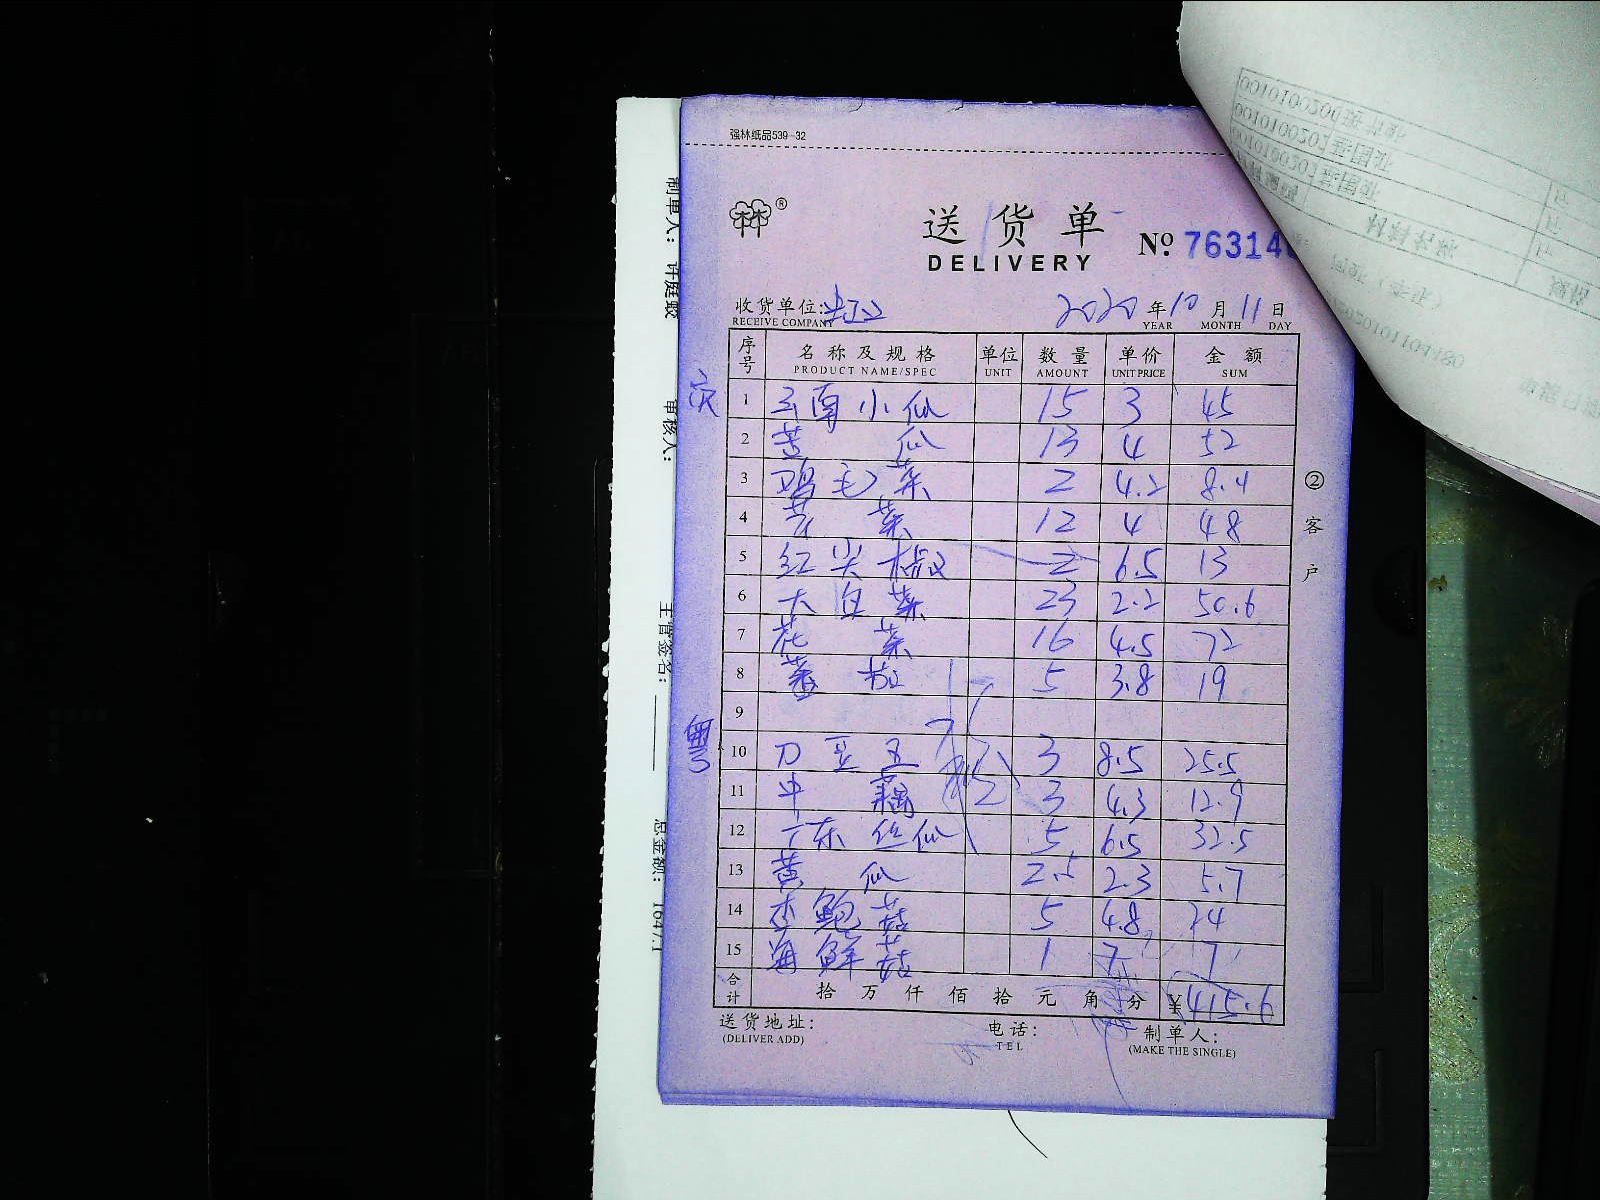 强林纸品539-32
送货单
DELIVERY
№ 76314
收货单位:
RECEIVE COMPANY
2020年10月11日
YEAR MONTH DAY
序号 名称及规格 单位 数量 单价 金额
PRODUCT NAME/SPEC UNIT AMOUNT UNIT PRICE SUM
1 云南小瓜 15 3 45
2 苦瓜 13 4 52
3 鸡毛菜 2 4.2 8.4
4 芥菜 12 4 48
5 红尖椒 2 6.5 13
6 大白菜 23 2.2 50.6
7 花菜 16 4.5 72
8 蕃茄 5 3.8 19
9
10 刀豆 3 8.5 25.5
11 中藕 3 4.3 12.9
12 广东丝瓜 5 6.5 32.5
13 黄瓜 2.5 2.3 5.7
14 杏鲍菇 5 4.8 24
15 海鲜菇 1 7 7
合计 拾万仟佰拾元角分 ¥415.6
送货地址:
(DELIVER ADD)
电话:
TEL
制单人:
(MAKE THE SINGLE)
②客户
制单人: 许庭毅
审核人:
主管签名:
总金额: 1647.1